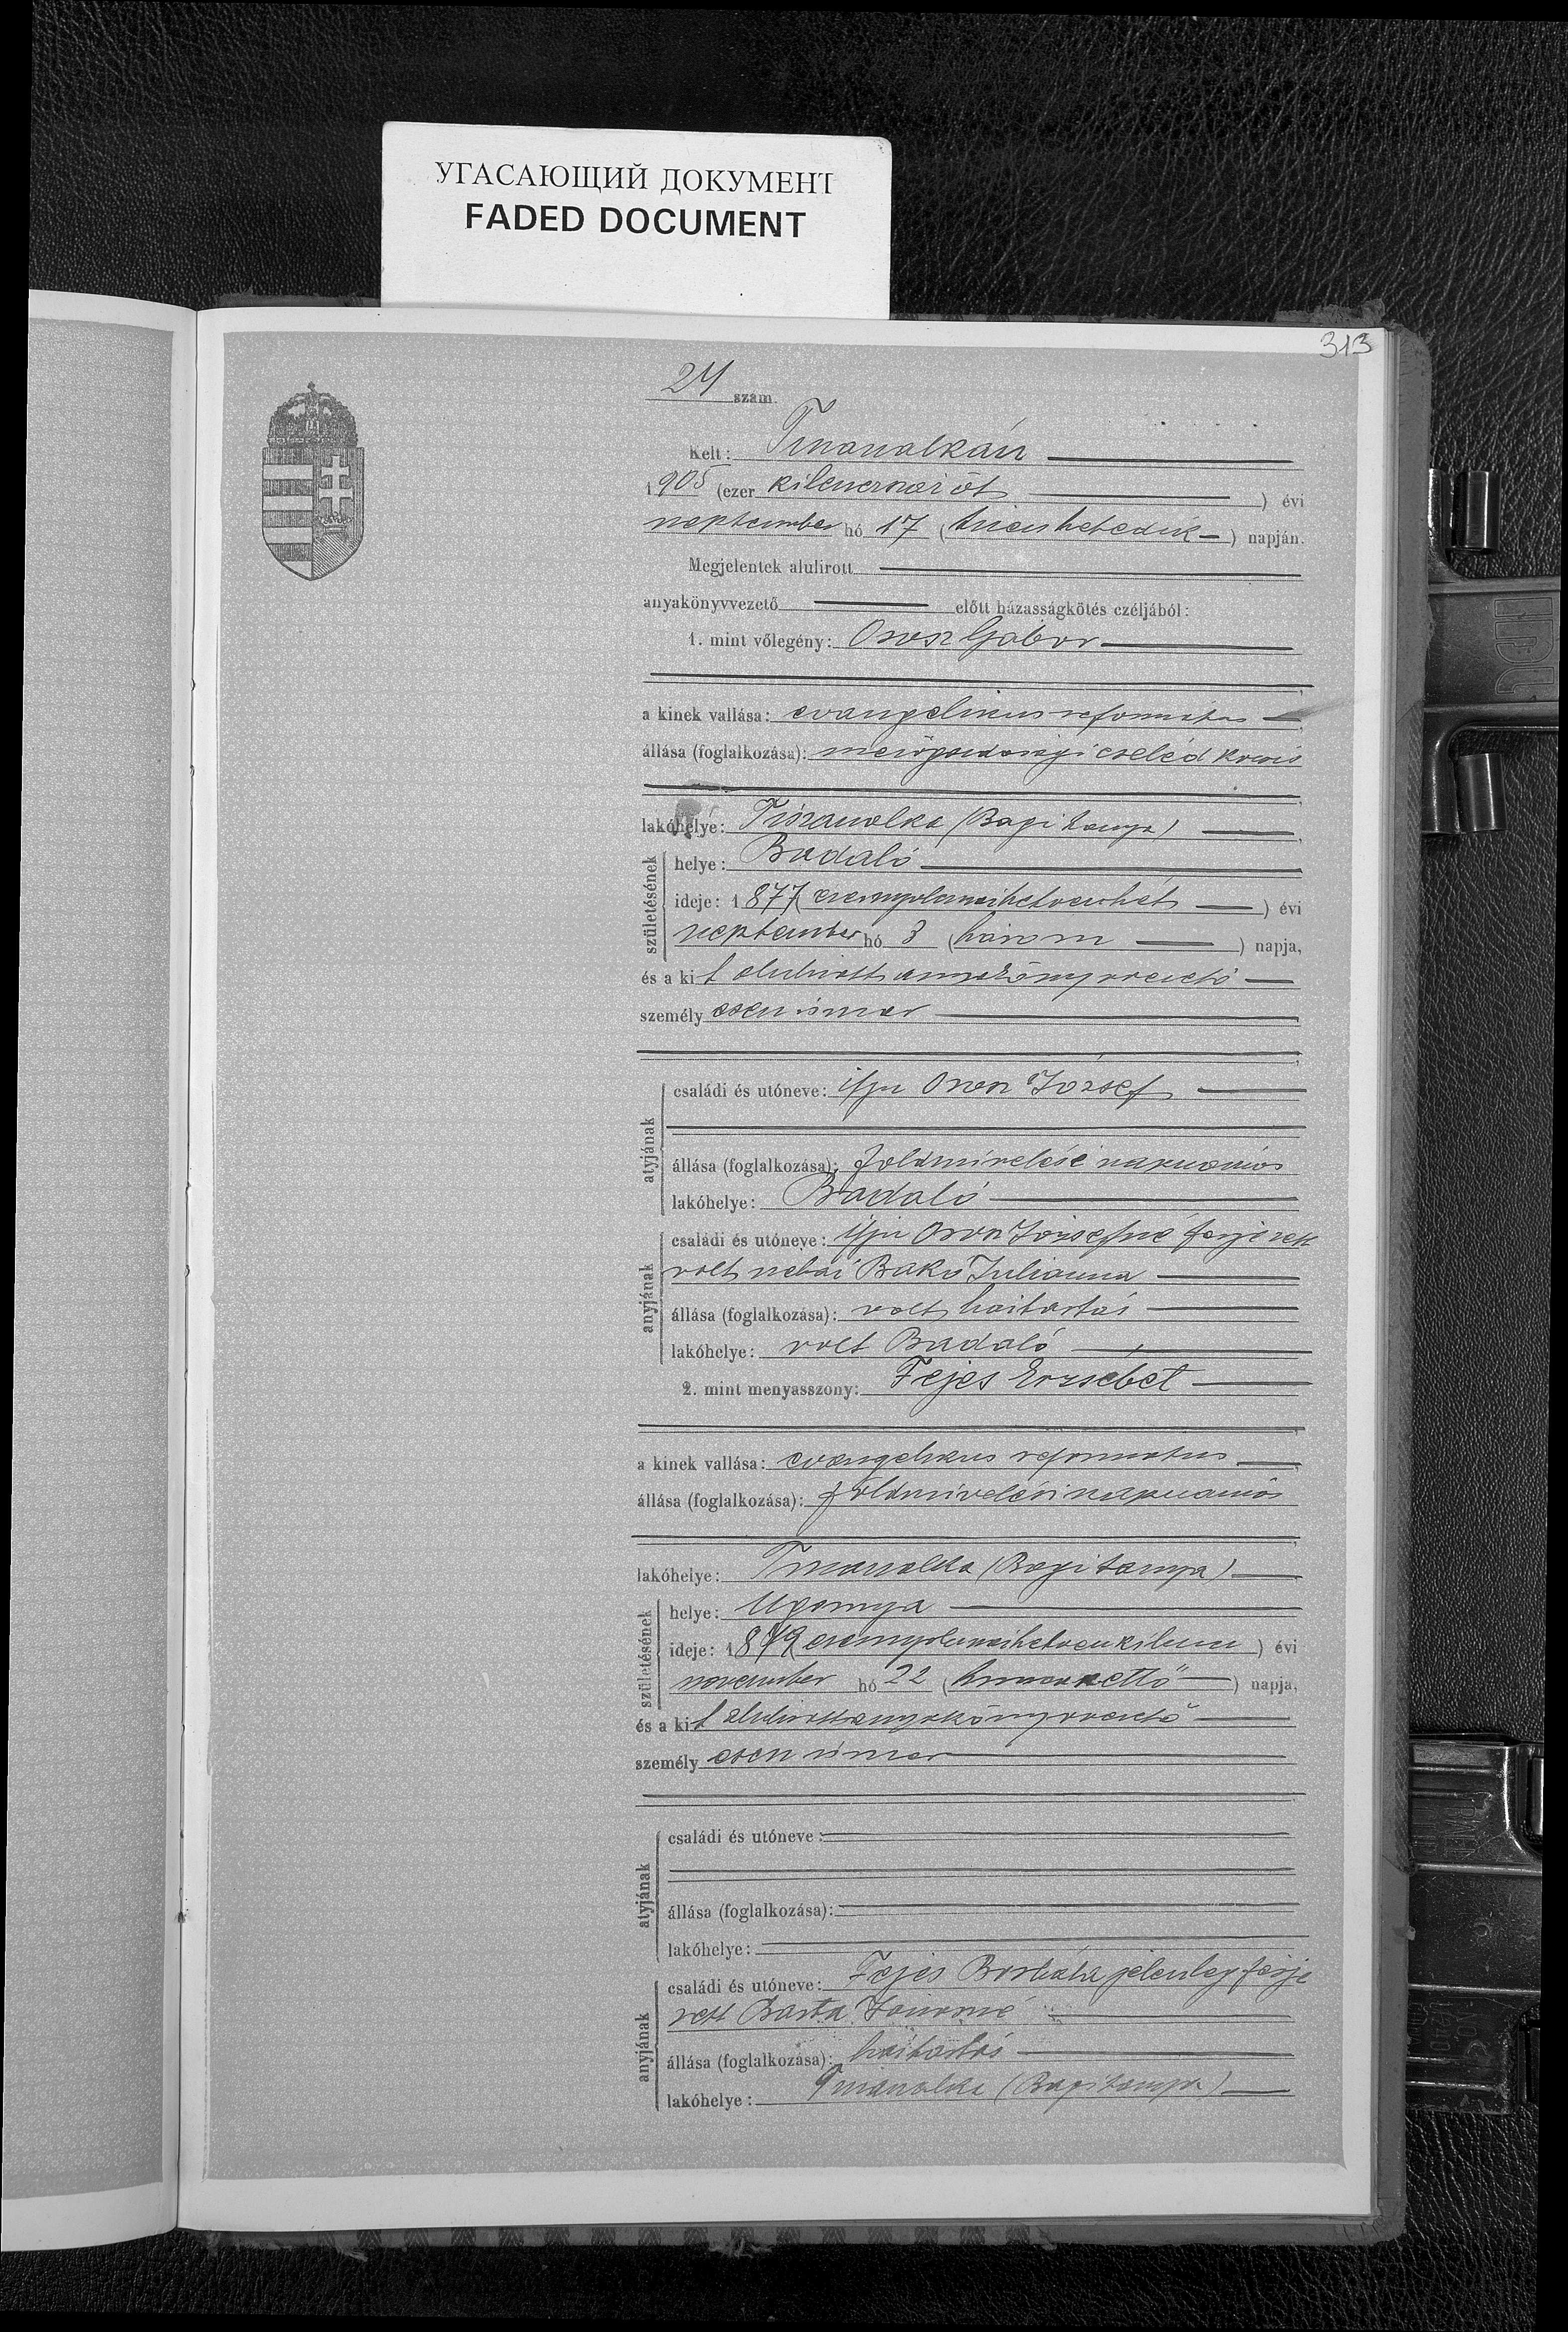 УГАСАЮЩИЙ ДОКУМЕНТ
FADED DOCUMENT
313
24 szám.
Kelt: Tiszaszalkán
1905 (ezer kilenczszáz öt) évi
szeptember hó 17 (tizenhetedik) napján.
Megjelentek alulirott
anyakönyvvezető előtt házasságkötés czéljából:
1. mint vőlegény: Orosz Gábor
a kinek vallása: evangelikus református
állása (foglalkozása): mezőgazdasági cseléd kocsis
lakóhelye: Tiszaszalka (Bagi tanya)
születésének
helye: Badaló
ideje: 1877 (ezernyolczszázhetvenhét) évi
szeptember hó 3 (három) napja,
és a kit alulirott anyakönyvvezető
személyesen ismer
atyjának
családi és utóneve: ifju Orosz József
állása (foglalkozása): földmívelési napszámos
lakóhelye: Badaló
anyjának
családi és utóneve: ifju Orosz Józsefné férjezett
volt néhai Bakó Julianna
állása (foglalkozása): volt háztartás
lakóhelye: volt Badaló
2. mint menyasszony: Fejes Erzsébet
a kinek vallása: evangelikus református
állása (foglalkozása): földmívelési napszámos
lakóhelye: Tiszaszalka (Bagi tanya)
születésének
helye: Ugornya
ideje: 1879 (ezernyolczszázhetvenkilencz) évi
november hó 22 (huszonkettő) napja,
és a kit alulirott anyakönyvvezető
személyesen ismer
atyjának
családi és utóneve:
állása (foglalkozása):
lakóhelye:
anyjának
családi és utóneve: Fejes Borbála jelenleg férje
zett Barta Jánosné
állása (foglalkozása): háztartás
lakóhelye: Tiszaszalka (Bagi tanya)